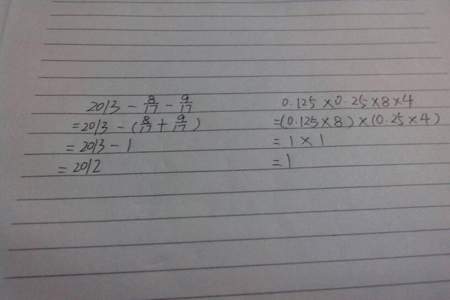 2013 - 8/17 - 9/17
=2013 - (8/17 + 9/17)
= 2013 - 1
= 2012
0.125×0.25×8×4
=(0.125×8)×(0.25×4)
= 1 × 1
= 1